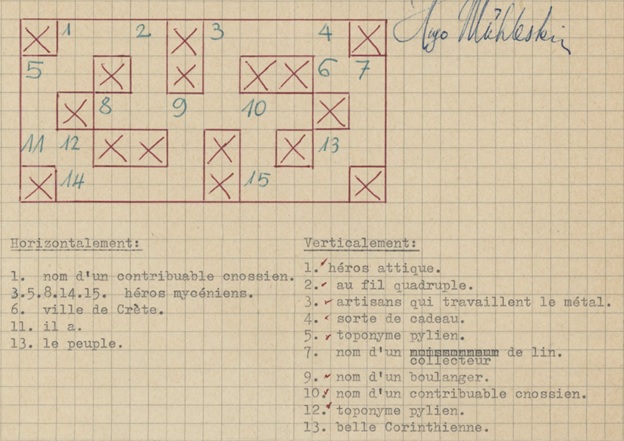 Hugo Mühlestein
1 2 3 4
5 6 7
8 9 10
11 12 13
14 15
Horizontalement:
1. nom d'un contribuable cnossien.
3.5.8.14.15. héros mycéniens.
6. ville de Crète.
11. il a.
13. le peuple.
Verticalement:
1. héros attique.
2. au fil quadruple.
3. artisans qui travaillent le métal.
4. sorte de cadeau.
5. toponyme pylien.
7. nom d'un de lin.
collecteur
9. nom d'un boulanger.
10. nom d'un contribuable cnossien.
12. toponyme pylien.
13. belle Corinthienne.